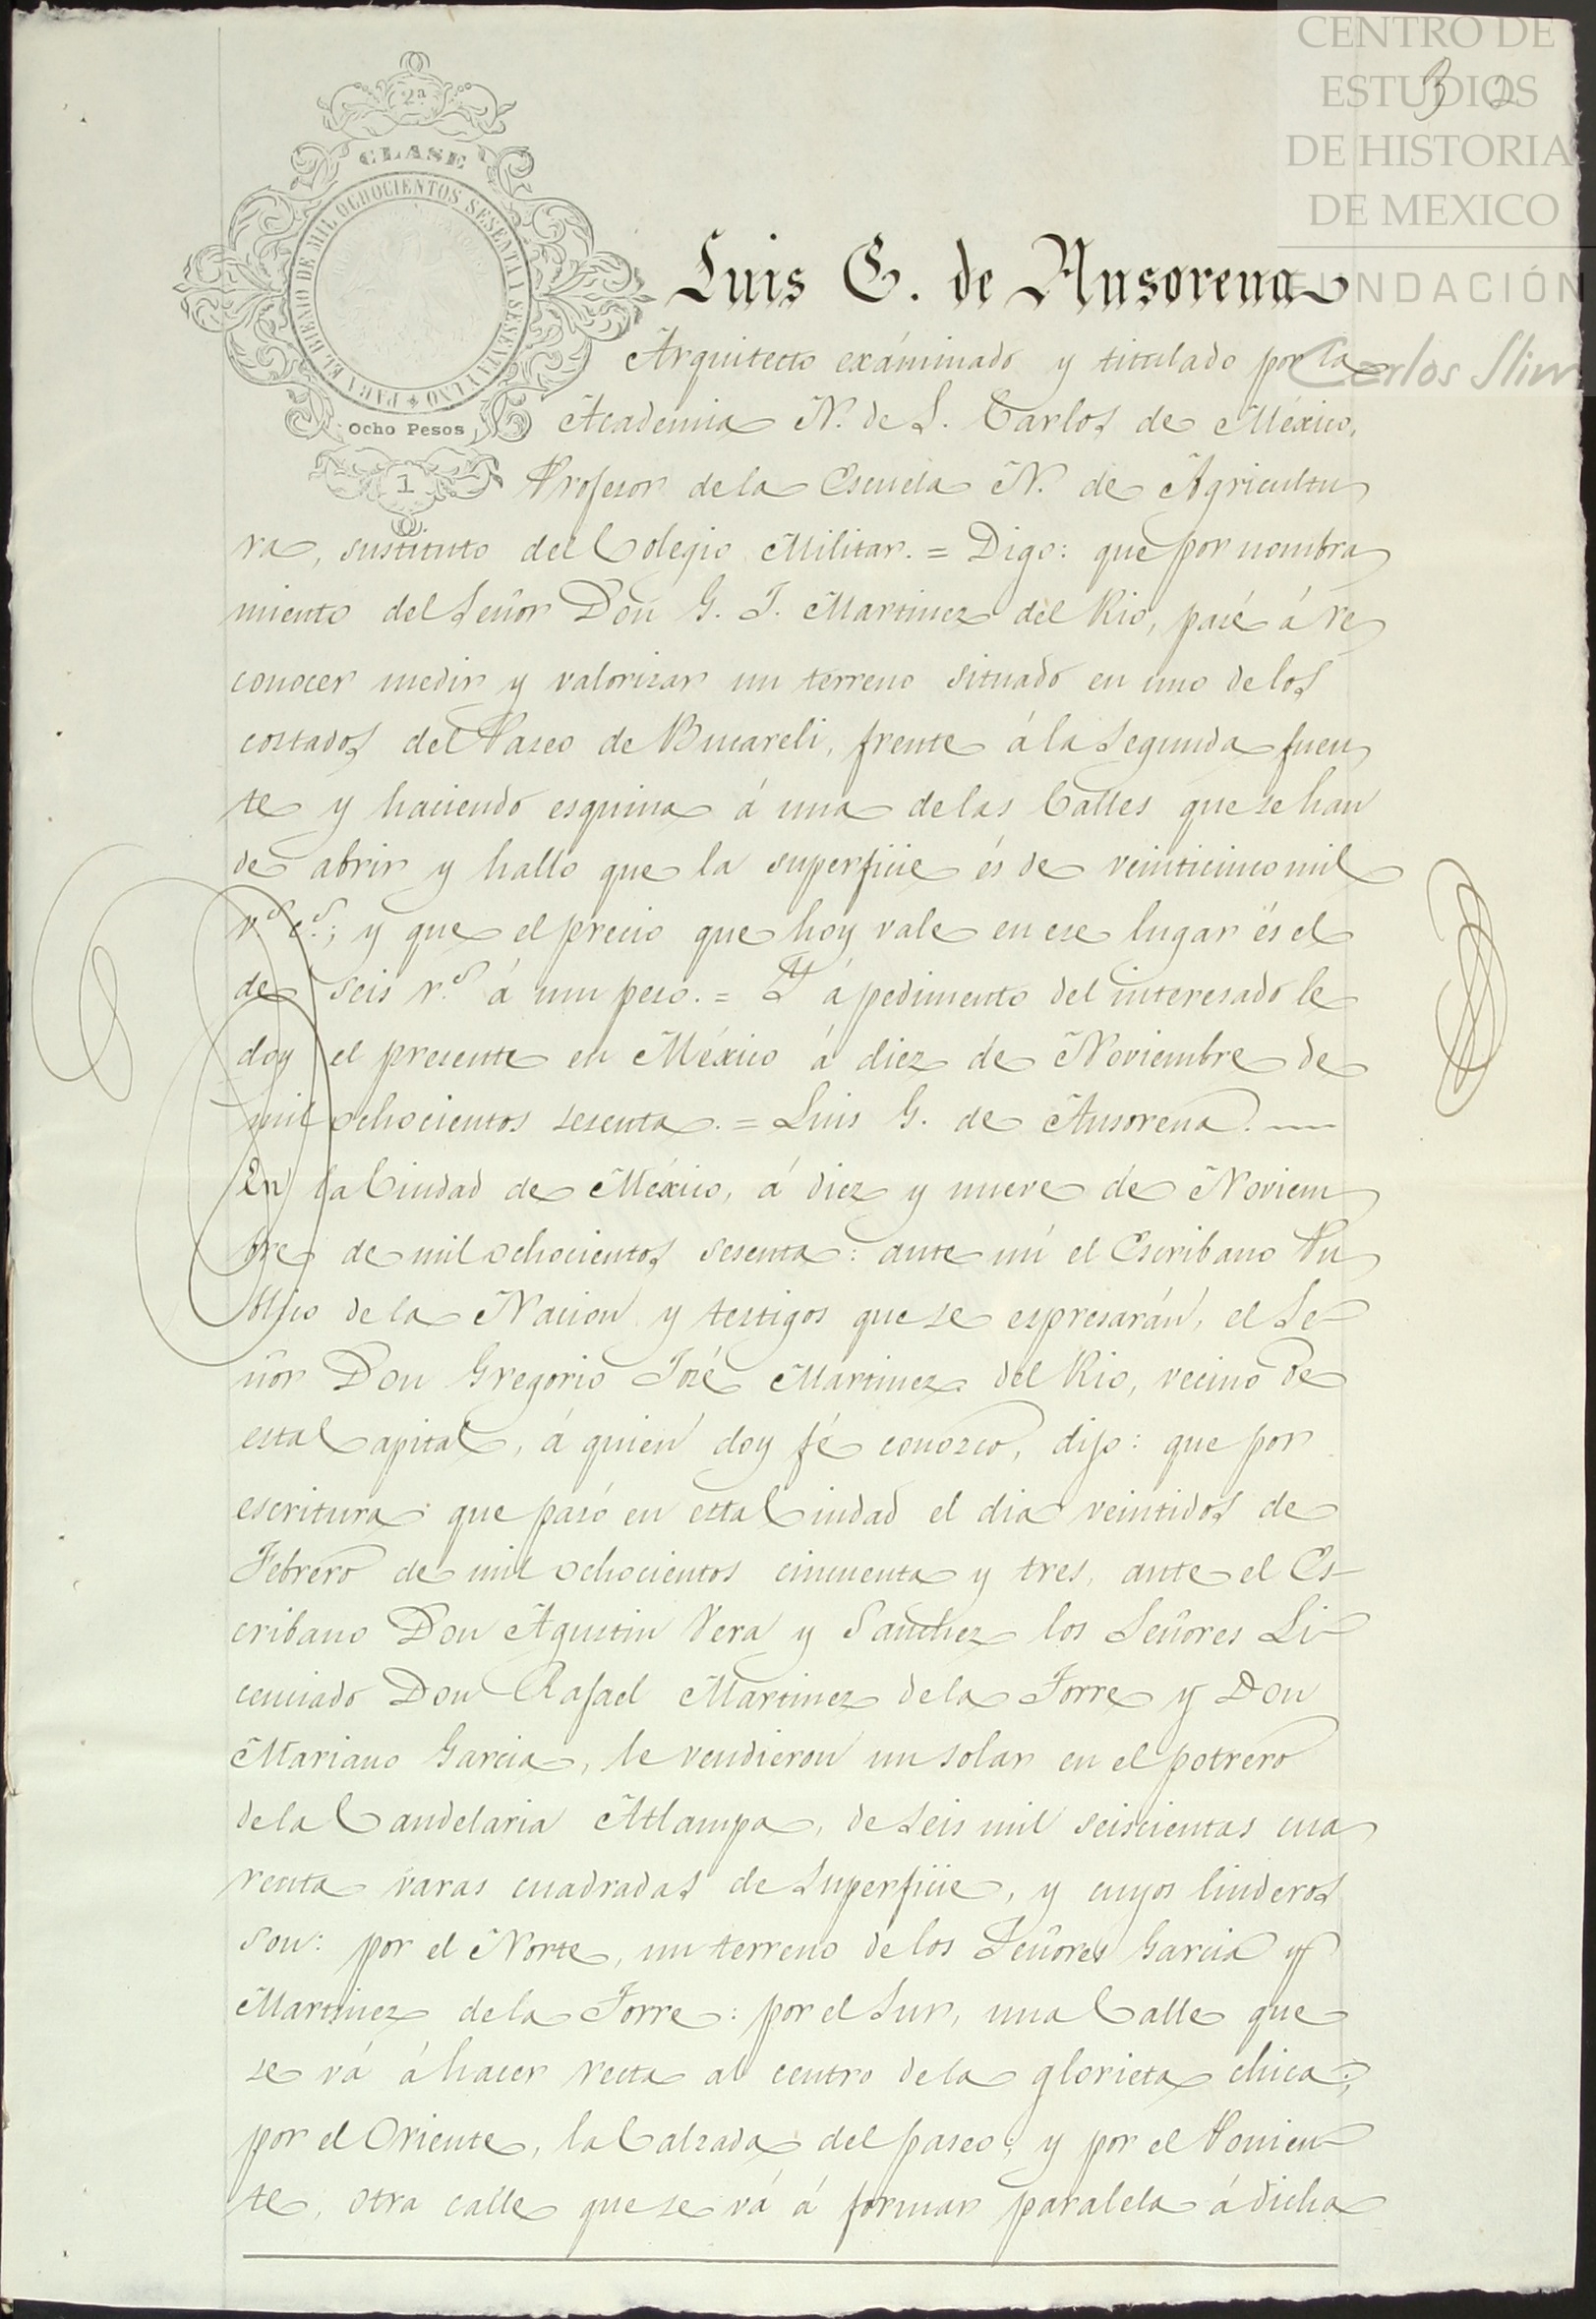 CENTRO DE
ESTUDIOS
DE HISTORIA
DE MEXICO
FUNDACIÓN
Carlos Slim
2ª
CLASE
PARA EL BIENIO DE MIL OCHOCIENTOS SESENTA Y SESENTA Y UNO
Ocho Pesos
1
Luis G. de Ansorena
Arquitecto exáminado y titulado por la
Academia N. de S. Carlos de México,
Profesor de la Escuela N. de Agricultu
ra, sustituto del Colegio Militar. = Digo: que por nombra
miento del Señor Don G. J. Martinez del Rio, pasé á re
conocer medir y valorizar un terreno situado en uno de los
costados del Paseo de Bucareli, frente á la Segunda fuen
te y haciendo esquina á una de las Calles que se han
de abrir y hallo que la superficie és de veinticinco mil
v.s c.s; y que el precio que hoy vale en ese lugar és el
de seis r.s á un peso. = Y á pedimento del interesado le
doy el presente en México á diez de Noviembre de
mil ochocientos sesenta. = Luis G. de Ansorena. —
En la Ciudad de México, á diez y nueve de Noviem
bre de mil ochocientos sesenta: ante mí el Escribano Pu
blico de la Nacion y testigos que se espresarán, el Se-
ñor Don Gregorio José Martinez del Rio, vecino de
esta Capital, á quien doy fé conozco, dijo: que por
escritura que pasó en esta Ciudad el dia veintidos de
Febrero de mil ochocientos cincuenta y tres, ante el Es-
cribano Don Agustin Vera y Sanchez los Señores Li-
cenciado Don Rafael Martinez de la Torre y Don
Mariano Garcia, le vendieron un solar en el potrero
de la Candelaria Atlampa, de seis mil seiscientas cua
renta varas cuadradas de superficie, y cuyos linderos
son: por el Norte, un terreno de los Señores Garcia y
Martinez de la Torre: por el Sur, una Calle que
se vá á hacer recta al centro de la glorieta chica;
por el Oriente, la Calzada del paseo; y por el Ponien-
te, otra calle que se vá á formar paralela á dicha